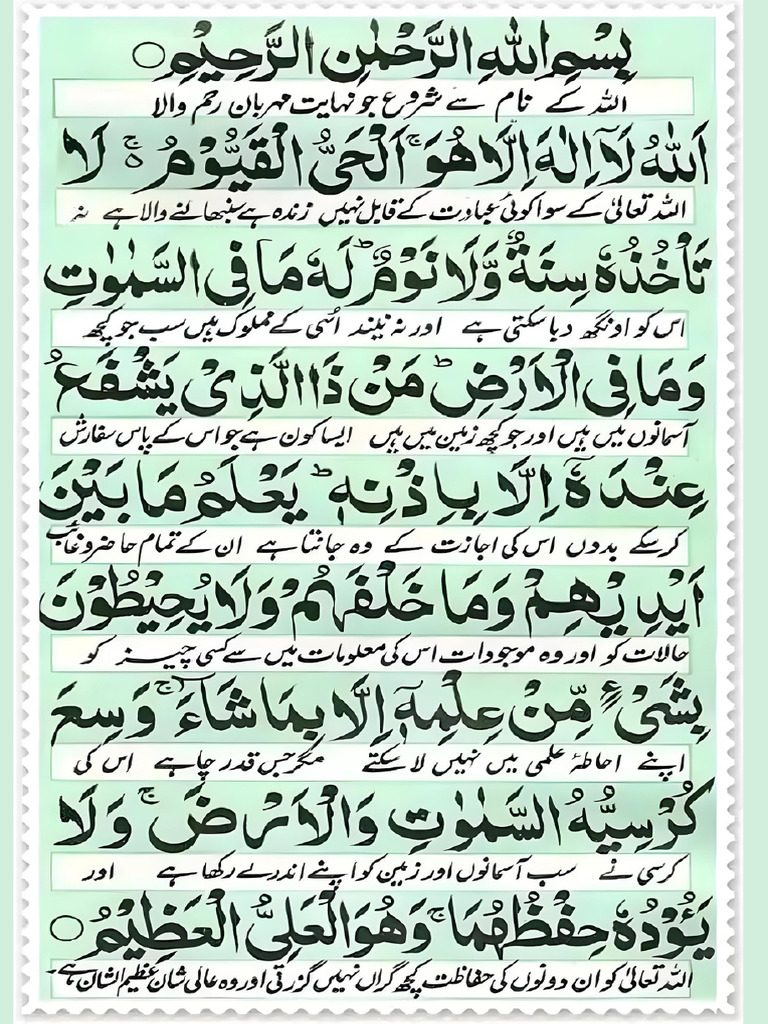 بِسْمِ اللّٰهِ الرَّحْمٰنِ الرَّحِيْمِ ○
اللہ کے نام سے شروع جو نہایت مہربان رحم والا
اَللّٰهُ لَاۤ اِلٰهَ اِلَّا هُوَ ۚ اَلْحَیُّ الْقَیُّوْمُ ۚ لَا
اللہ تعالیٰ کے سوا کوئی عبادت کے قابل نہیں زندہ ہے سنبھالنے والا ہے نہ
تَاْخُذُهٗ سِنَةٌ وَّلَا نَوْمٌ ؕ لَهٗ مَا فِی السَّمٰوٰتِ
اس کو اونگھ دبا سکتی ہے اور نہ نیند اسی کے مملوک ہیں سب جو کچھ
وَمَا فِی الْاَرْضِ ؕ مَنْ ذَا الَّذِیْ یَشْفَعُ
آسمانوں میں ہیں اور جو کچھ زمین میں ہیں ایسا کون ہے جو اس کے پاس سفارش
عِنْدَهٗۤ اِلَّا بِاِذْنِهٖ ؕ یَعْلَمُ مَا بَیْنَ
کر سکے بدوں اس کی اجازت کے وہ جانتا ہے ان کے تمام حاضر و غائب
اَیْدِیْهِمْ وَمَا خَلْفَهُمْ ۚ وَلَا یُحِیْطُوْنَ
حالات کو اور وہ موجودات اس کی معلومات میں سے کسی چیز کو
بِشَیْءٍ مِّنْ عِلْمِهٖۤ اِلَّا بِمَا شَآءَ ۚ وَسِعَ
اپنے احاطۂ علمی میں نہیں لا سکتے مگر جس قدر چاہے اس کی
كُرْسِیُّهُ السَّمٰوٰتِ وَالْاَرْضَ ۚ وَلَا
کرسی نے سب آسمانوں اور زمین کو اپنے اندر لے رکھا ہے اور
یَـُٔوْدُهٗ حِفْظُهُمَا ۚ وَهُوَ الْعَلِیُّ الْعَظِیْمُ ○
اللہ تعالیٰ کو ان دونوں کی حفاظت کچھ گراں نہیں گزرتی اور وہ عالی شان عظیم الشان ہے۔